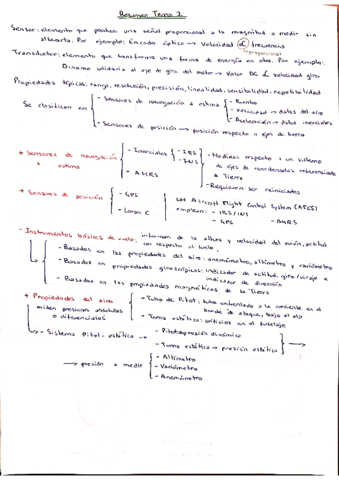 Resumen Tema 2
Sensor: elemento que produce una señal proporcional a la magnitud a medir sin
alterarla. Por ejemplo: Encoder óptico → Velocidad α frecuencia
proporcional
Transductor: elemento que transforma una forma de energía en otra. Por ejemplo:
Dinamo solidaria al eje de giro del motor → Valor DC α velocidad giro
Propiedades típicas: rango, resolución, precisión, linealidad, sensibilidad, repetibilidad
Se clasifican en
- Sensores de navegación a estima
- Rumbo
- Velocidad → datos del aire
- Aceleración → datos inerciales
- Sensores de posición → posición respecto a ejes de tierra
+ Sensores de navegación a estima
- Inerciales
- IRS
- INS
- AHRS
- Medidas respecto a un sistema
de ejes de coordenadas referenciado
a Tierra
- Requieren ser reiniciados
+ Sensores de posición
- GPS
- Loran C
Los Aircraft Flight Control System (AFCS)
emplean:
- IRS/INS
- GPS
- AHRS
- Instrumentos básicos de vuelo: informan de la altura y velocidad del avión, actitud
con respecto al suelo.
- Basados en las propiedades del aire: anemómetro, altímetro y variómetro
- Basados en propiedades giroscópicas: indicador de actitud, giro/viraje e
indicador de dirección
- Basados en las propiedades magnéticas de la Tierra
+ Propiedades del aire
miden presiones absolutas
o diferenciales
- Tubo de Pitot: tubo enfrentado a la corriente en el
borde de ataque, bajo el ala
- Toma estática: orificios en el fuselaje
- Sistema Pitot-estática →
- Pitot → presión dinámica
- Toma estática → presión estática
→ presión a medir
- Altímetro
- Variómetro
- Anemómetro